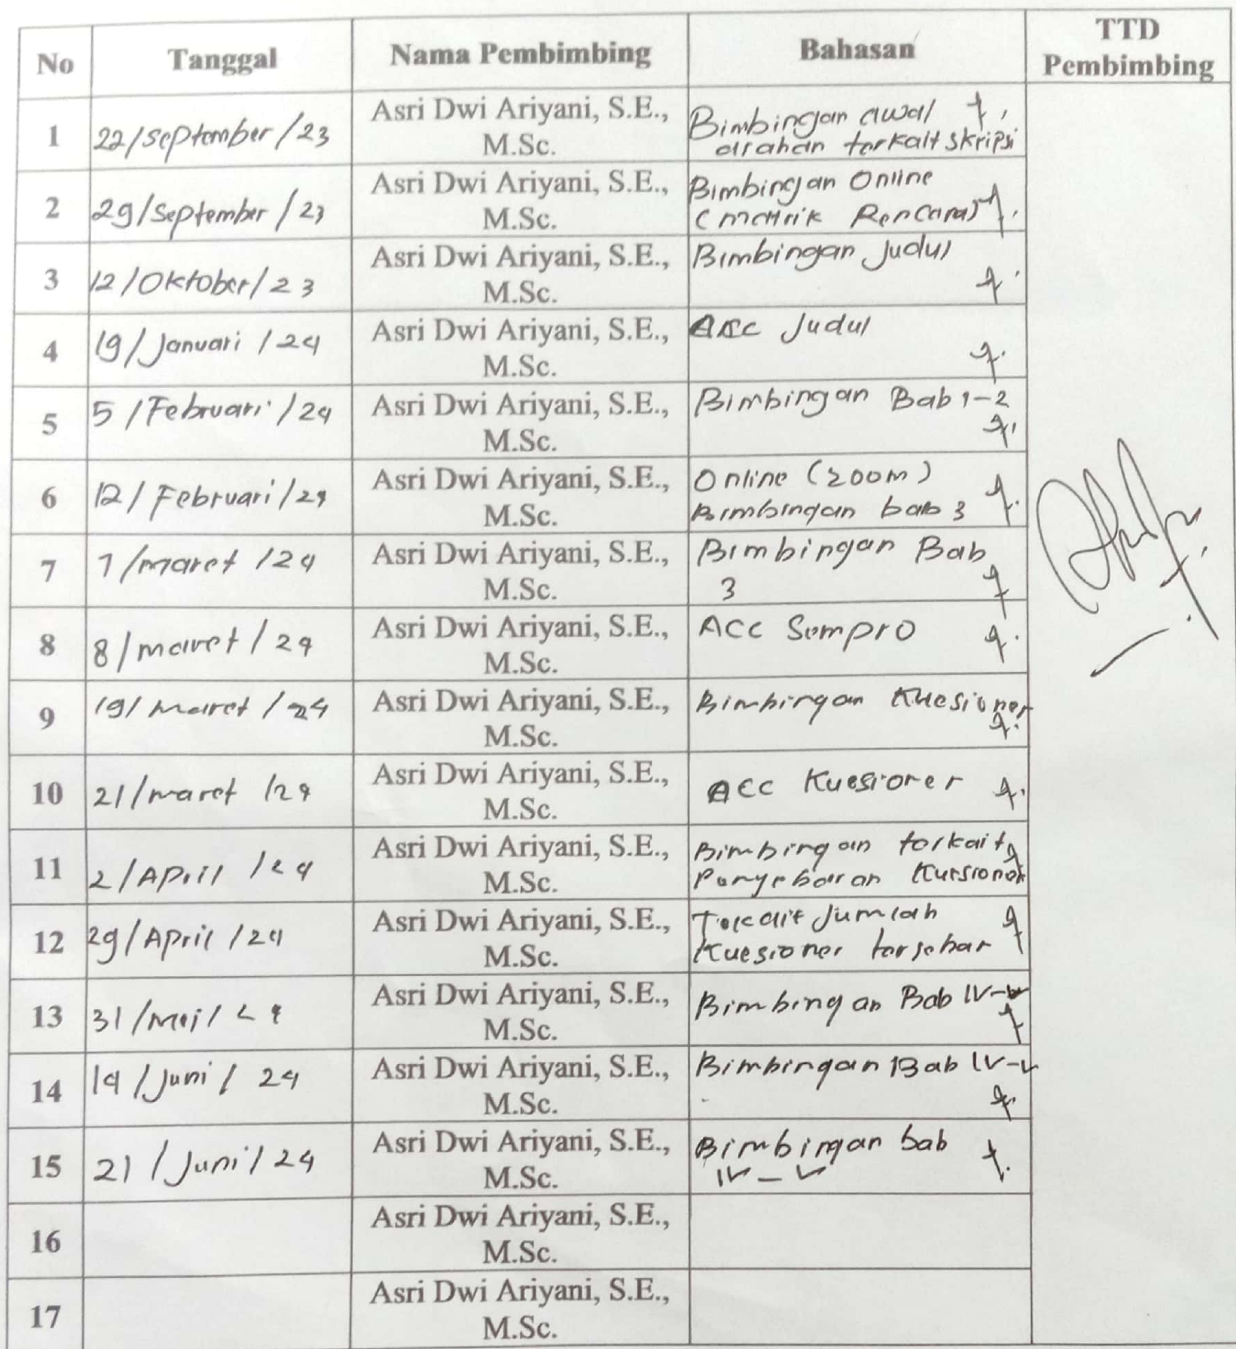 No Tanggal Nama Pembimbing Bahasan TTD Pembimbing
1 22/September/23 Asri Dwi Ariyani, S.E., M.Sc. Bimbingan awal
arahan terkait skripsi
2 29/September/23 Asri Dwi Ariyani, S.E., M.Sc. Bimbingan Online
(Matrik Rencana)
3 12/Oktober/23 Asri Dwi Ariyani, S.E., M.Sc. Bimbingan Judul
4 19/Januari/24 Asri Dwi Ariyani, S.E., M.Sc. Acc Judul
5 5/Februari/24 Asri Dwi Ariyani, S.E., M.Sc. Bimbingan Bab 1-2
6 12/Februari/24 Asri Dwi Ariyani, S.E., M.Sc. Online (zoom)
Bimbingan bab 3
7 /maret/24 Asri Dwi Ariyani, S.E., M.Sc. Bimbingan Bab
3
8 8/maret/24 Asri Dwi Ariyani, S.E., M.Sc. ACC Sempro
9 19/Maret/24 Asri Dwi Ariyani, S.E., M.Sc. Bimbingan Kuesioner
10 21/maret/24 Asri Dwi Ariyani, S.E., M.Sc. Acc Kuesioner
11 2/April/24 Asri Dwi Ariyani, S.E., M.Sc. Bimbingan terkait
Penyebaran Kuesioner
12 29/April/24 Asri Dwi Ariyani, S.E., M.Sc. Terkait Jumlah
Kuesioner tersebar
13 31/Mei/24 Asri Dwi Ariyani, S.E., M.Sc. Bimbingan Bab IV-V
14 14/Juni/24 Asri Dwi Ariyani, S.E., M.Sc. Bimbingan Bab IV-V
15 21/Juni/24 Asri Dwi Ariyani, S.E., M.Sc. Bimbingan bab
IV-V
16 Asri Dwi Ariyani, S.E., M.Sc.
17 Asri Dwi Ariyani, S.E., M.Sc.